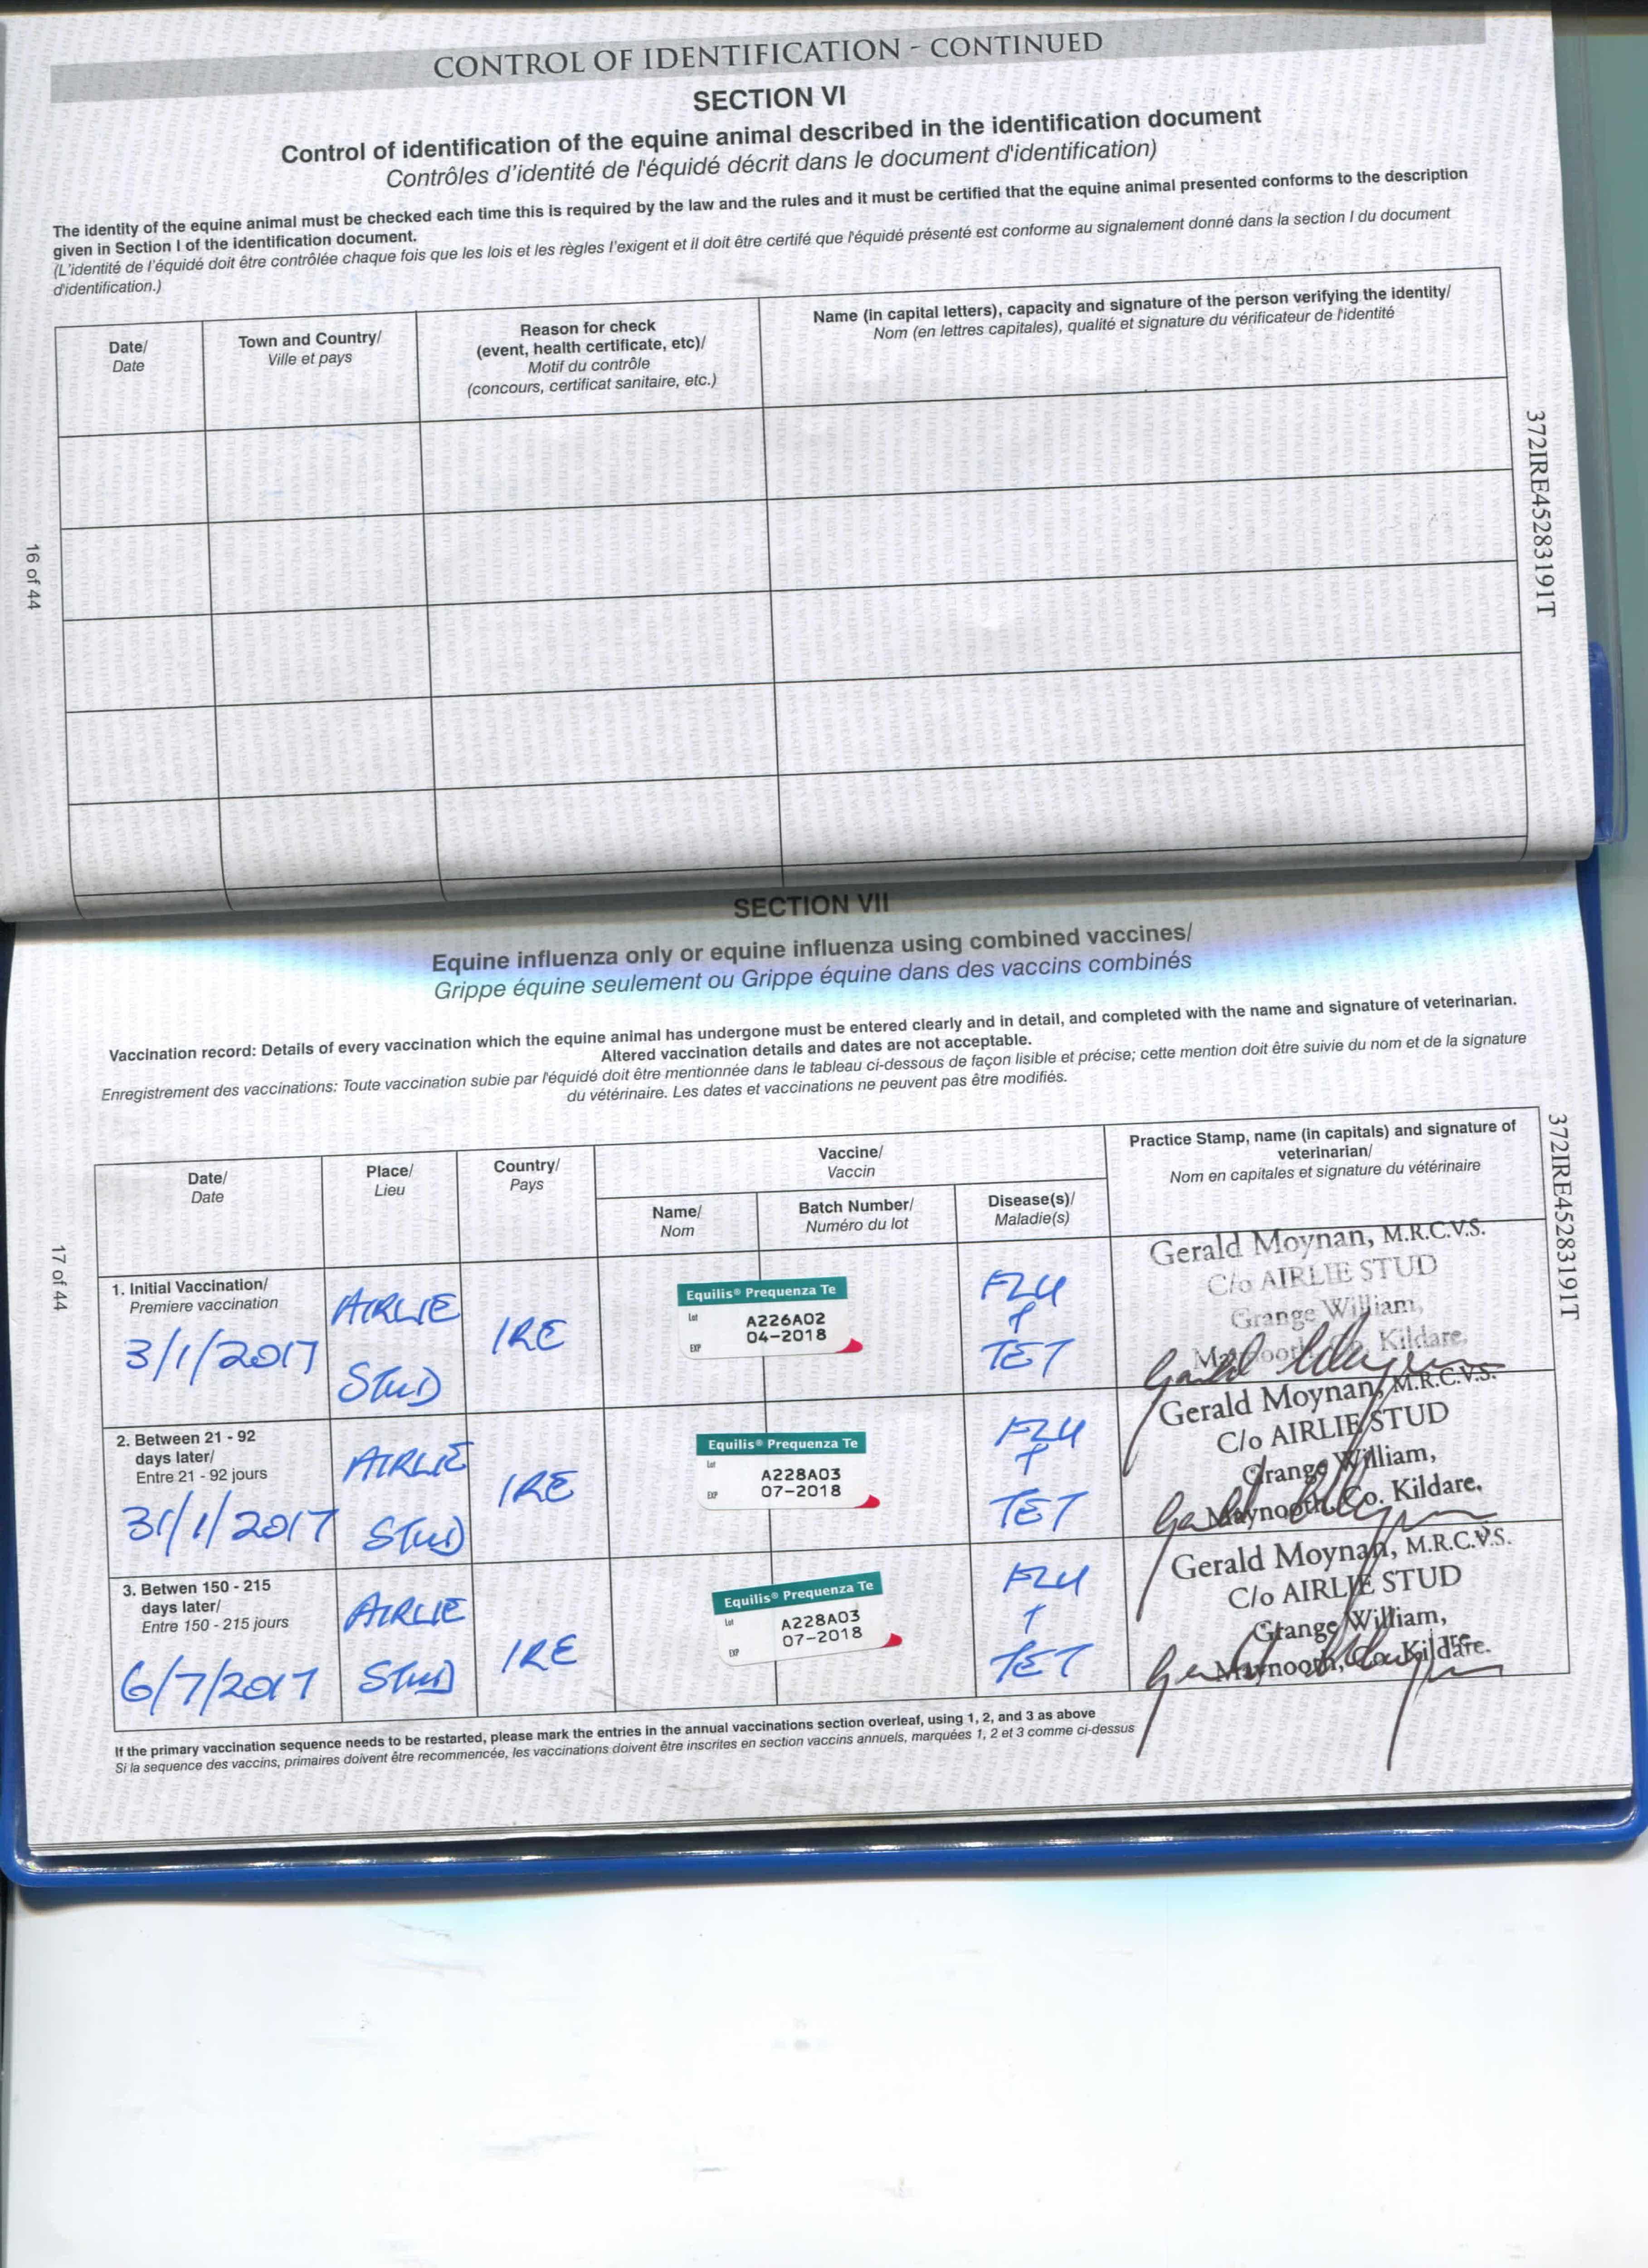 CONTROL OF IDENTIFICATION - CONTINUED
SECTION VI
Control of identification of the equine animal described in the identification document
Contrôles d'identité de l'équidé décrit dans le document d'identification)
The identity of the equine animal must be checked each time this is required by the law and the rules and it must be certified that the equine animal presented conforms to the description
given in Section I of the identification document.
(L'identité de l'équidé doit être contrôlée chaque fois que les lois et les règles l'exigent et il doit être certifé que l'équidé présenté est conforme au signalement donné dans la section I du document
d'identification.)
Date/
Date
Town and Country/
Ville et pays
Reason for check
(event, health certificate, etc)/
Motif du contrôle
(concours, certificat sanitaire, etc.)
Name (in capital letters), capacity and signature of the person verifying the identity/
Nom (en lettres capitales), qualité et signature du vérificateur de l'identité
372IRE45283191T
16 of 44
SECTION VII
Equine influenza only or equine influenza using combined vaccines/
Grippe équine seulement ou Grippe équine dans des vaccins combinés
Vaccination record: Details of every vaccination which the equine animal has undergone must be entered clearly and in detail, and completed with the name and signature of veterinarian.
Altered vaccination details and dates are not acceptable.
Enregistrement des vaccinations: Toute vaccination subie par l'équidé doit être mentionnée dans le tableau ci-dessous de façon lisible et précise; cette mention doit être suivie du nom et de la signature
du vétérinaire. Les dates et vaccinations ne peuvent pas être modifiés.
Date/
Date
Place/
Lieu
Country/
Pays
Vaccine/
Vaccin
Name/
Nom
Batch Number/
Numéro du lot
Disease(s)/
Maladie(s)
Practice Stamp, name (in capitals) and signature of
veterinarian/
Nom en capitales et signature du vétérinaire
372IRE45283191T
17 of 44
1. Initial Vaccination/
Premiere vaccination
3/1/2017
AIRLIE
STUD
IRE
Equilis® Prequenza Te
Lot A226A02
EXP 04-2018
FLU
+
TET
Gerald Moynan, M.R.C.V.S.
C/o AIRLIE STUD
Grange William,
Maynooth, Co. Kildare,
2. Between 21 - 92
days later/
Entre 21 - 92 jours
31/1/2017
AIRLIE
STUD
IRE
Equilis® Prequenza Te
Lot A228A03
EXP 07-2018
FLU
+
TET
Gerald Moynan, M.R.C.V.S.
C/o AIRLIE STUD
Grange William,
Maynooth, Co. Kildare.
3. Betwen 150 - 215
days later/
Entre 150 - 215 jours
6/7/2017
AIRLIE
STUD
IRE
Equilis® Prequenza Te
Lot A228A03
EXP 07-2018
FLU
+
TET
Gerald Moynan, M.R.C.V.S.
C/o AIRLIE STUD
Grange William,
Maynooth, Co. Kildare.
If the primary vaccination sequence needs to be restarted, please mark the entries in the annual vaccinations section overleaf, using 1, 2, and 3 as above
Si la sequence des vaccins, primaires doivent être recommencée, les vaccinations doivent être inscrites en section vaccins annuels, marquées 1, 2 et 3 comme ci-dessus